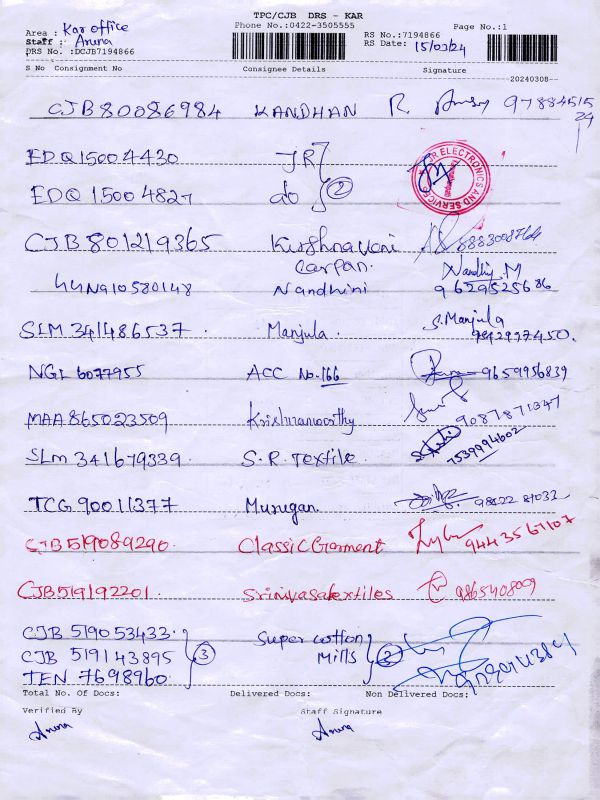 TPC/CJB DRS - KAR
Area : Kar office Phone No.:0422-3505555 Page No.:1
Staff : Aruna RS No.:7194866
DRS No. :DCJB7194866 RS Date: 15/03/24
S No Consignment No Consignee Details Signature
20240308
CJB80086984 KANDHAN R.
EDQ15004430 JR
EDQ 15004827 do 2
ELECTRONICS AND SERVICE
CJB801219365 Krishnaveni
Carpan.
Nandhiy.M
Nandhini 9629525686
SLM 341486537. Manjula. S.Manjula
9842997450.
NGL 6077955 ACC No-166 9659956839
MAA865023509 Krishnamoorthy 9087871347
SLM 341679339 S.R. Textile. 7539994602
TCG 90011377 Murugan.
CJB519089290 Classic Garment 9443567107
CJB519192201. Srinivasatextiles
CJB 519053433. Super cotton
CJB 519143895 3 Mills 2
TEN 7698960
Total No. Of Docs: Delivered Docs: Non Delivered Docs:
Verified By Staff Signature
Aruna Aruna